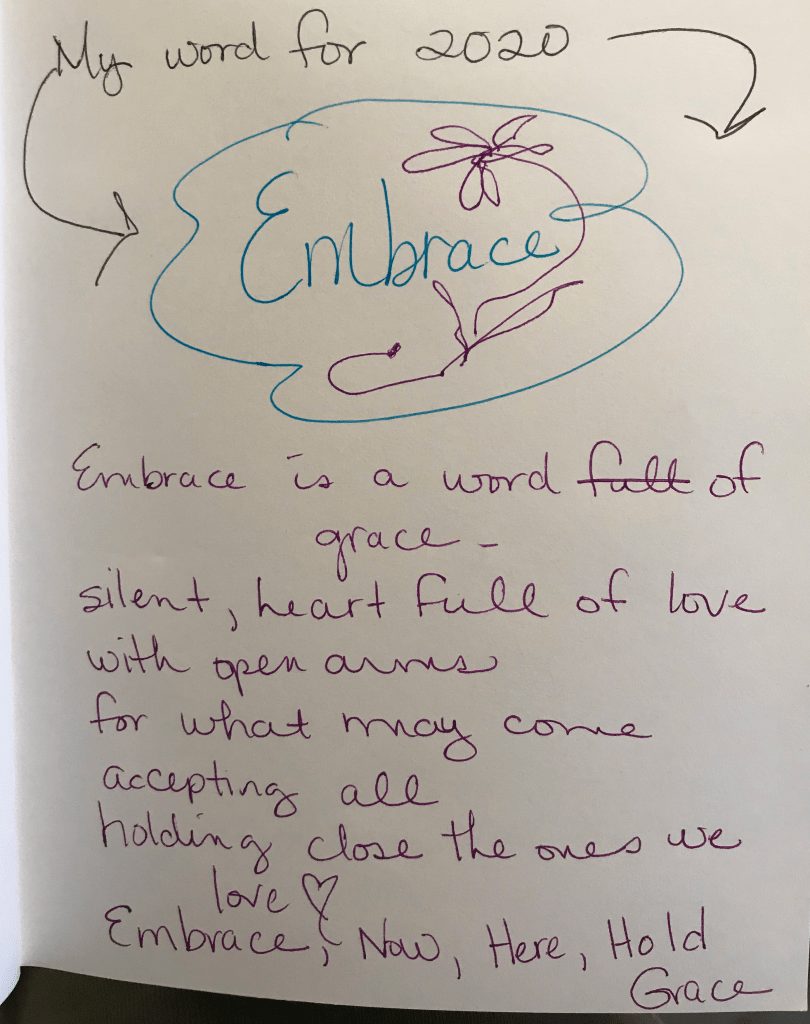 My word for 2020
Embrace
Embrace is a word full of
grace -
silent, heart full of love
with open arms
for what may come
accepting all
holding close the ones we
love ♡
Embrace, Now, Here, Hold
Grace